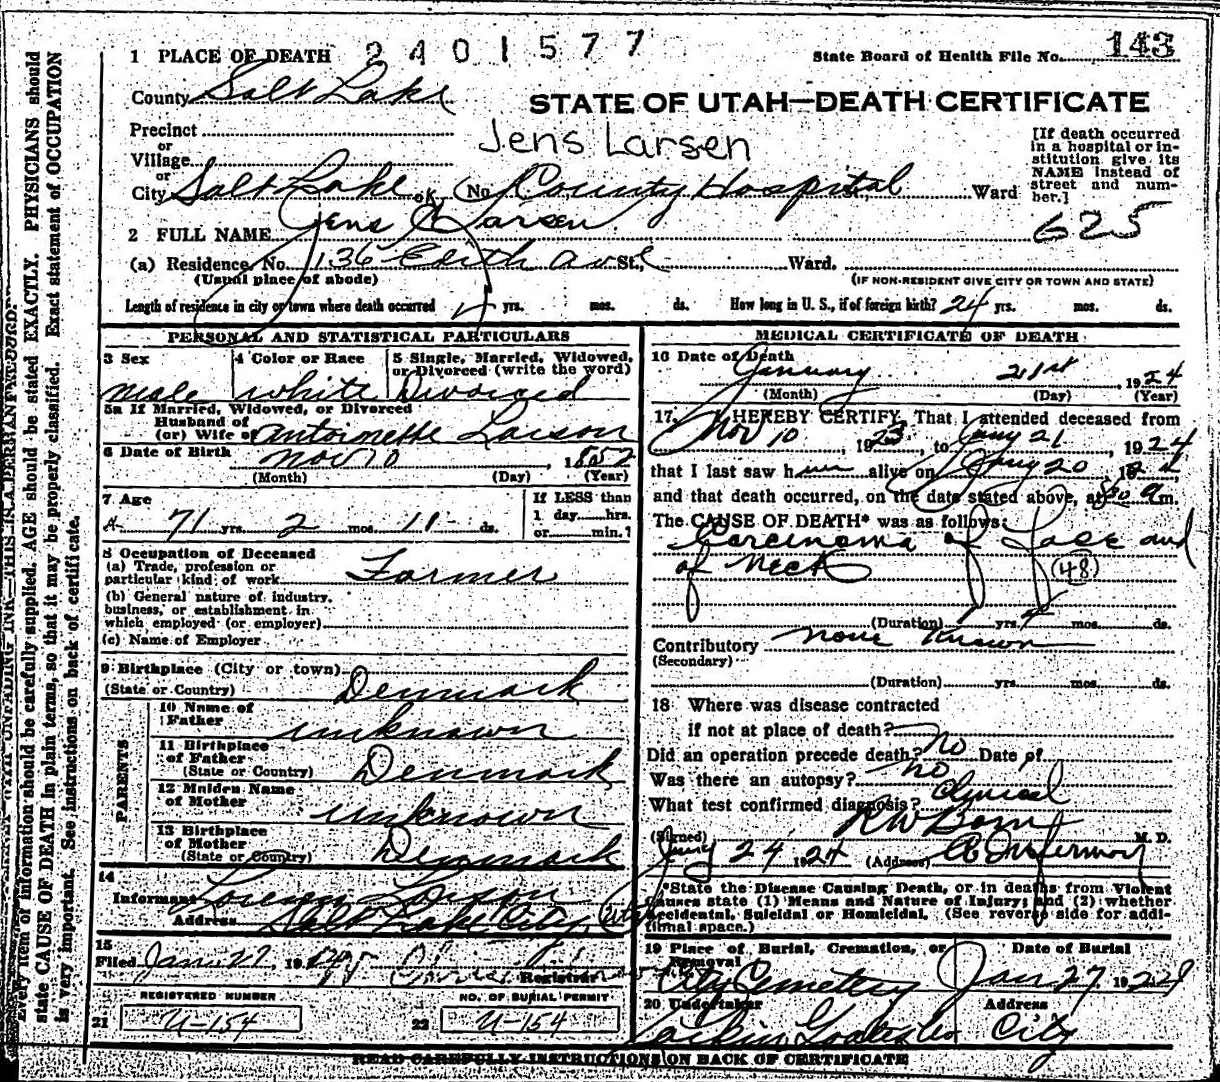 1 PLACE OF DEATH 2401577
State Board of Health File No. 143
County Salt Lake
STATE OF UTAH—DEATH CERTIFICATE
Precinct
or
Village
or
City Salt Lake (No. County Hospital St., Ward
Jens Larsen
[If death occurred in a hospital or institution give its NAME instead of street and number.]
625
2 FULL NAME Jens Larsen
ok
(a) Residence, No. 136 Edith Ave St., Ward.
(Usual place of abode)
(IF NON-RESIDENT GIVE CITY OR TOWN AND STATE)
Length of residence in city or town where death occurred yrs. mos. ds. How long in U. S., if of foreign birth? 24 yrs. mos. ds.
PERSONAL AND STATISTICAL PARTICULARS
3 Sex male
4 Color or Race white
5 Single, Married, Widowed, or Divorced (write the word) Divorced
5a If Married, Widowed, or Divorced
Husband of
(or) Wife of Antoinette Larson
6 Date of Birth Nov 10, 1852
(Month) (Day) (Year)
7 Age 71 yrs. 2 mos. 11 ds.
If LESS than
1 day....hrs.
or....min.?
8 Occupation of Deceased
(a) Trade, profession or
particular kind of work Farmer
(b) General nature of industry,
business, or establishment in
which employed (or employer)
(c) Name of Employer
9 Birthplace (City or town)
(State or Country) Denmark
PARENTS
10 Name of
Father unknown
11 Birthplace
of Father
(State or Country) Denmark
12 Maiden Name
of Mother unknown
13 Birthplace
of Mother
(State or Country) Denmark
14
Informant Larson
Address Salt Lake City
15
Filed Jan. 27, 19
Registrar
REGISTERED NUMBER
21 U-154
NO. OF BURIAL PERMIT
22 U-154
MEDICAL CERTIFICATE OF DEATH
16 Date of Death
January 21st, 1924
(Month) (Day) (Year)
17. I HEREBY CERTIFY, That I attended deceased from
Nov 10, 1923, to Jany 21, 1924
that I last saw h alive on Jany 20, 192
and that death occurred, on the date stated above, at 8:30 a m.
The CAUSE OF DEATH* was as follows:
Carcinoma of face and
of neck (48)
(Duration) yrs. mos. ds.
Contributory none known
(Secondary)
(Duration) yrs. mos. ds.
18 Where was disease contracted
if not at place of death?
Did an operation precede death? no Date of
Was there an autopsy? no
What test confirmed diagnosis? Clinical
(Signed) R W M. D.
Jany 24 1924 (Address) Co Infirmary
*State the Disease Causing Death, or in deaths from Violent
Causes state (1) Means and Nature of Injury; and (2) whether
Accidental, Suicidal or Homicidal. (See reverse side for additional space.)
19 Place of Burial, Cremation, or
Removal
City Cemetery
Date of Burial
Jan 27, 1924
20 Undertaker
Address
City
READ CAREFULLY INSTRUCTIONS ON BACK OF CERTIFICATE
Every item of information should be carefully supplied. AGE should be stated EXACTLY. PHYSICIANS should
state CAUSE OF DEATH in plain terms, so that it may be properly classified. Exact statement of OCCUPATION
is very important. See instructions on back of certificate.